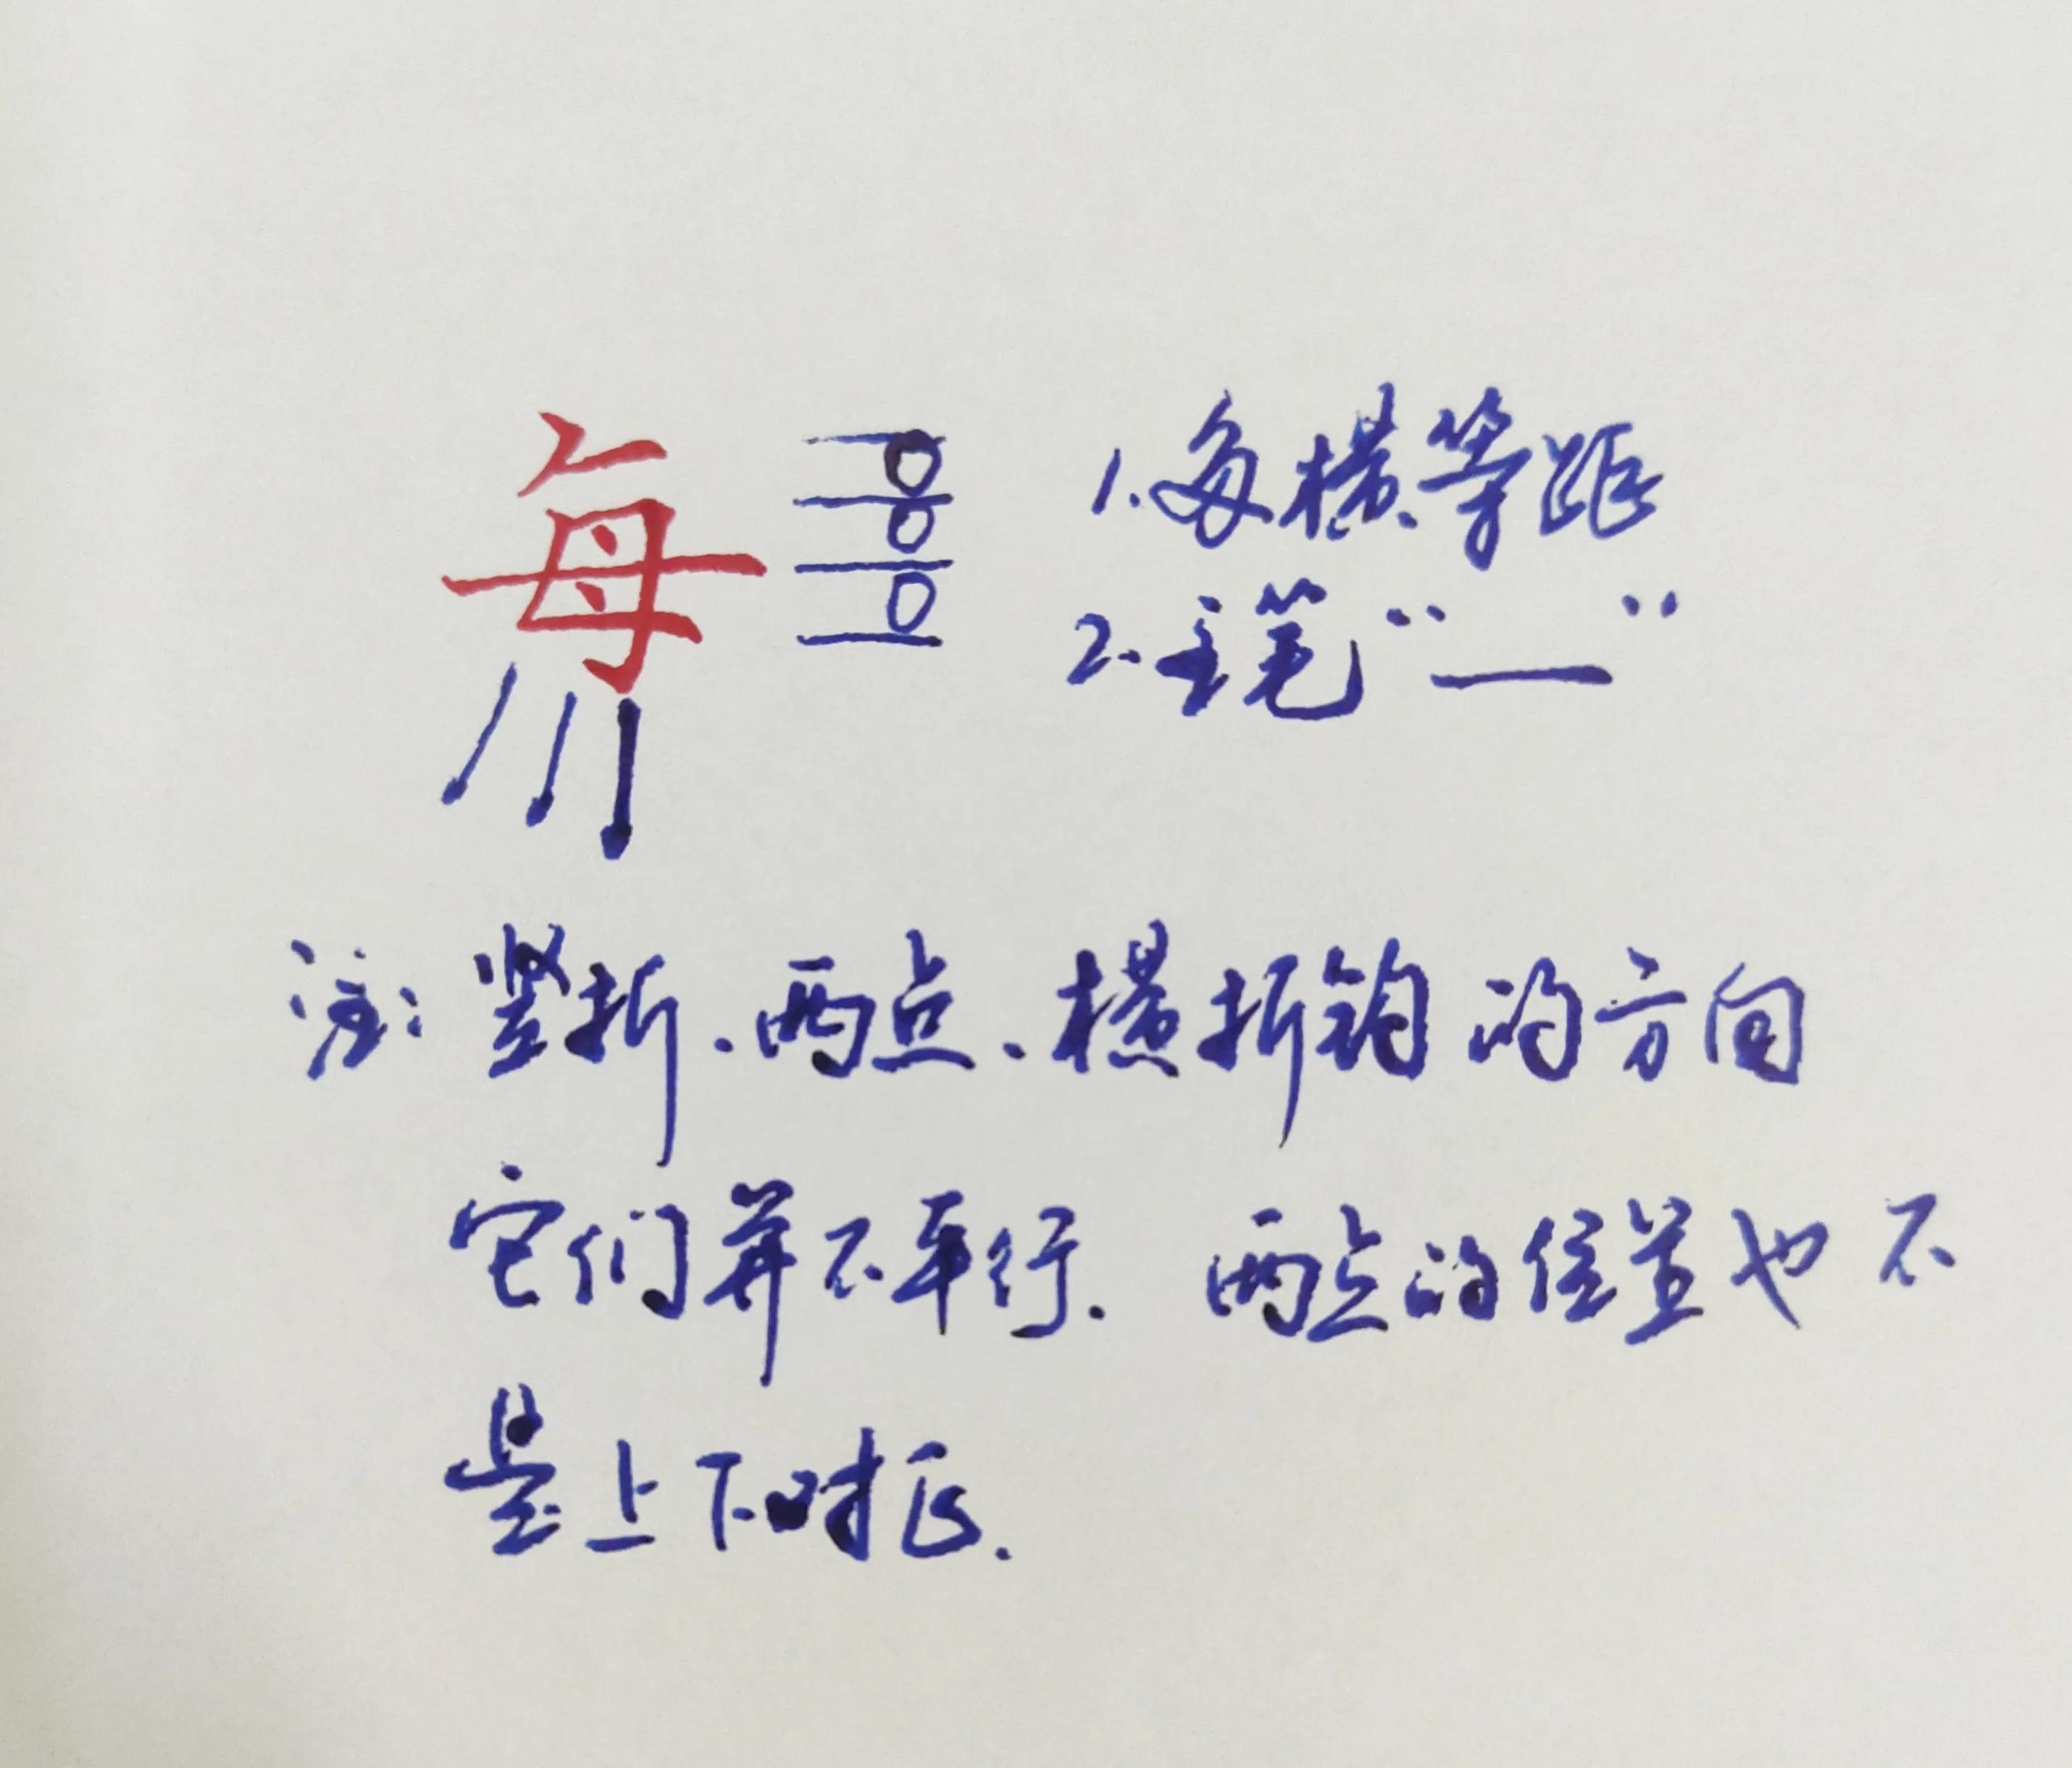 每
1.多横等距
2.主笔“一”
注:竖折.两点.横折钩的方向
它们并不平行.两点的位置也不
是上下对正.